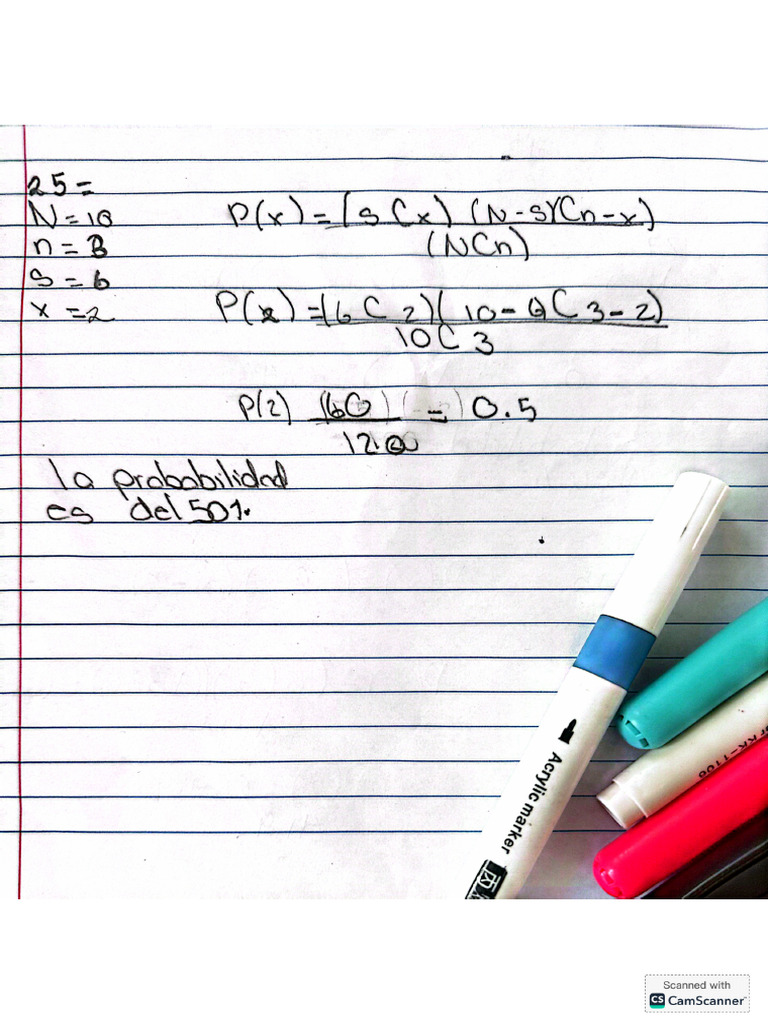 25=
N=10
n=3
s=6
x=2
P(x) = (s Cx) (N-S)(Cn-x)
(NCn)
P(2) = (6 C 2)(10-6 C 3-2)
10C3
P(2) (60) = 0.5
120
la probabilidad
es del 50%.
Acrylic marker
Scanned with
CS CamScanner